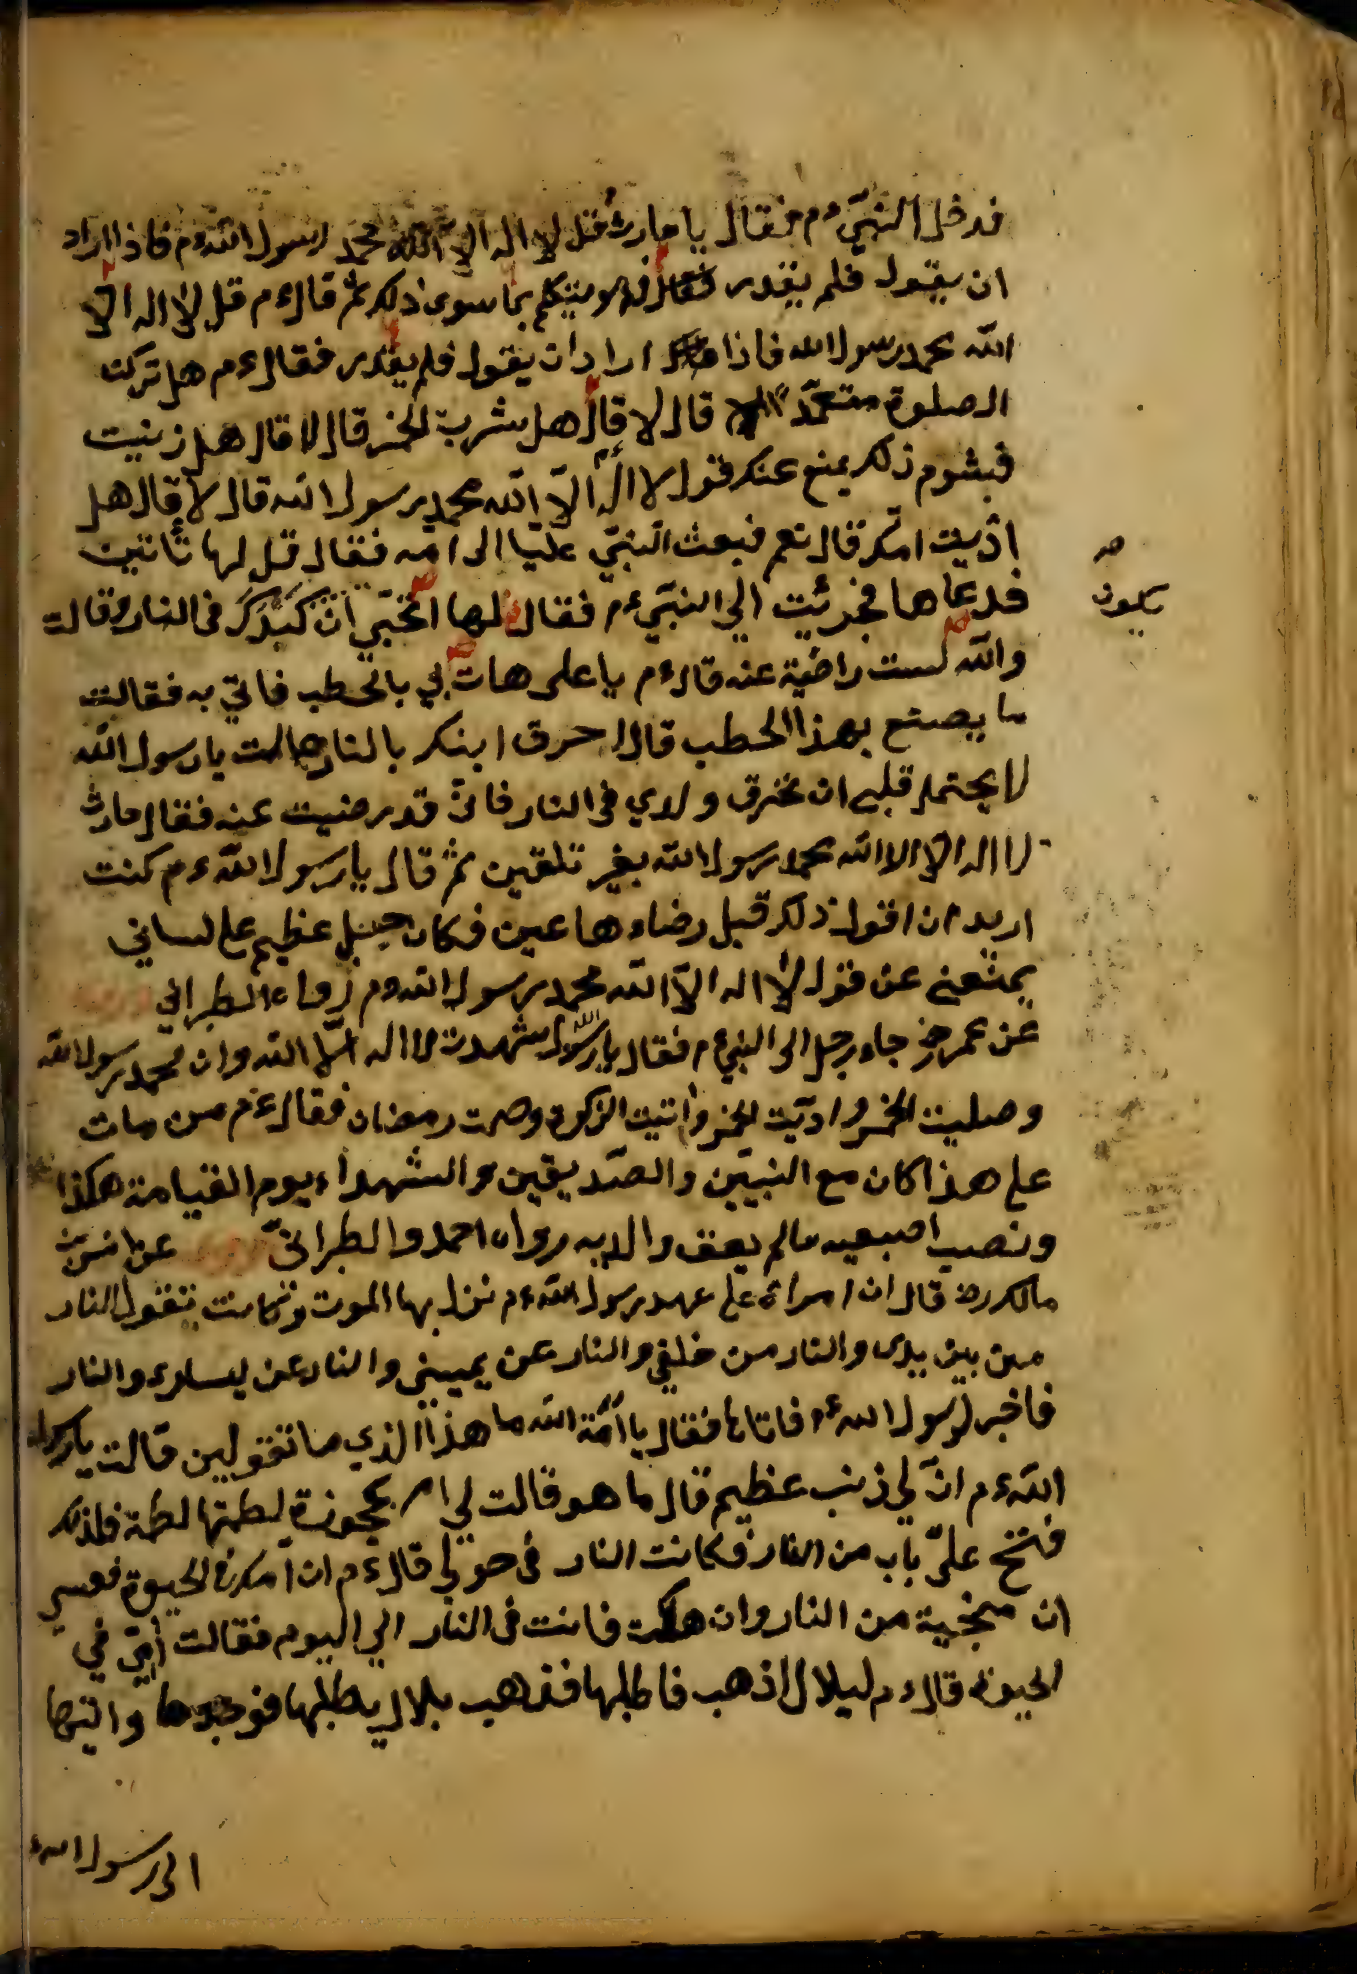 فدخل النبيّ ءم فقال يا حارث قل لا اله الا الله محمد رسول الله ءم فاذا اراد
ان يقول فلم يقدر ويتكلم بما سوى ذلك ثم قال ءم قل لا اله الا
الله محمد رسول الله فاذا اراد ان يقول فلم يقدر فقال ءم هل تركت
الصلوة متعمّدا قال لا قال هل شربت الخمر قال لا قال هل زنيت
فبشوم ذلك يمنع عنك قول لا اله الّا الله محمد رسول الله قال لا قال هل
اذيت امّك قال نعم فبعث النبيّ عليّا الى امه فقال قل لها تأتين
فدعاها فجرئت الي النبيّ ءم فقال لها اتحبّي انّ كبدك في النار وقالت
والله لست راضية عنه قال ءم يا على هات لي بالحطب فاتي به فقالت
ما يصنع بهذا الحطب قال احرق ابنك بالنار قالت يا رسول الله
لا يحتمل قلبي ان تحرق ولدي في النار فانّي قد رضيت عنه فقال حارث
لا اله الا الا الله محمد رسول الله بغير تلقين ثم قال يا رسول الله ءم كنت
اريد ان اقول ذلك قبل رضاء ها عين فكان جبل عظيم على لساني
يمنعني عن قول لا اله الّا الله محمد رسول الله ءم رواه الطبراني
عن عمر رض جاء رجل الى النبي ءم فقال يا رسول الله شهدت لا اله الّا الله وان محمد رسول الله
وصليت الخمس واديّت الخمس وأتيت الزكوة وصمت رمضان فقال ءم من مات
على هذا كان مع النبيّين والصّديقين والشهداء يوم القيامة هكذا
ونصب اصبعيه ما لم يعق والديه رواه احمد والطبرانيّ عن انس بن
مالك رض قال ان امراة على عهد رسول الله ءم نزل بها الموت وكانت تقول النار
من بين يدى والنار من خلفي والنار عن يميني والنار عن يسارى والنار
فاخبر لرسول الله ءم فاتاها فقال يا امّة الله ما هذا الذي ما تقولين قالت يا رسول
الله ءم انّ لي ذنب عظيم قال ما هو قالت لي ام عجوزة لطمتها لطمة فلذلك
فتح عليّ باب من النار فكانت النار في حولي قال ءم ان امك في الحيوة فعسى
ان منجية من النار وان هلكت فانت في النار الي اليوم فقالت أمّي في
الحيوة قال ءم لبلال اذهب فاطلبها فذهب بلال يطلبها فوجدها واتيها
الى رسول الله ء